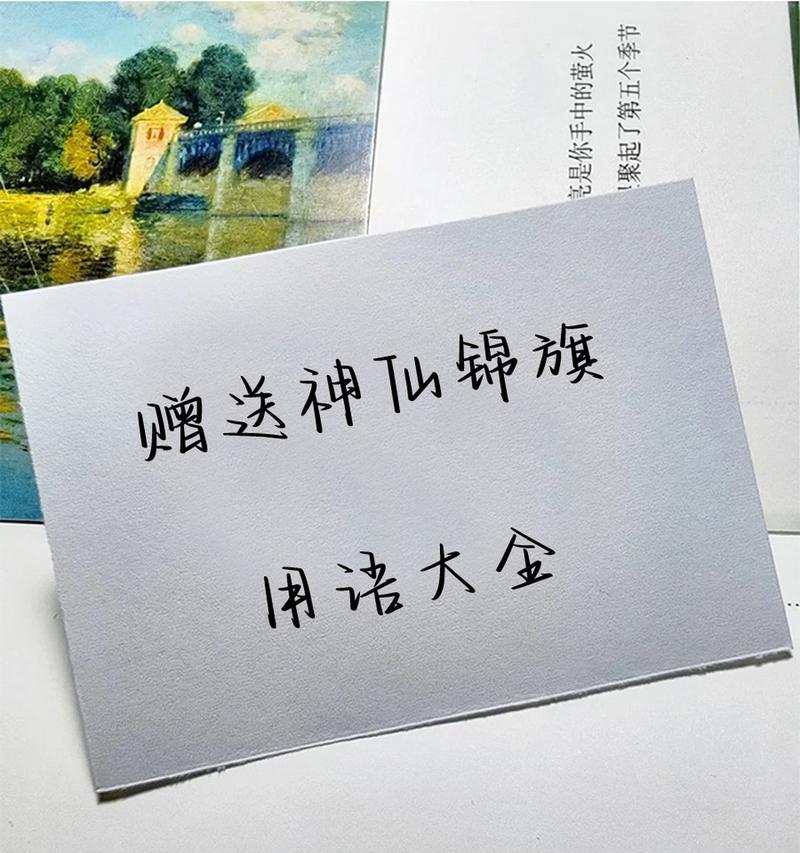 赠送神仙锦旗
用语大全
亮是你手中的萤火
聚起了第五个季节